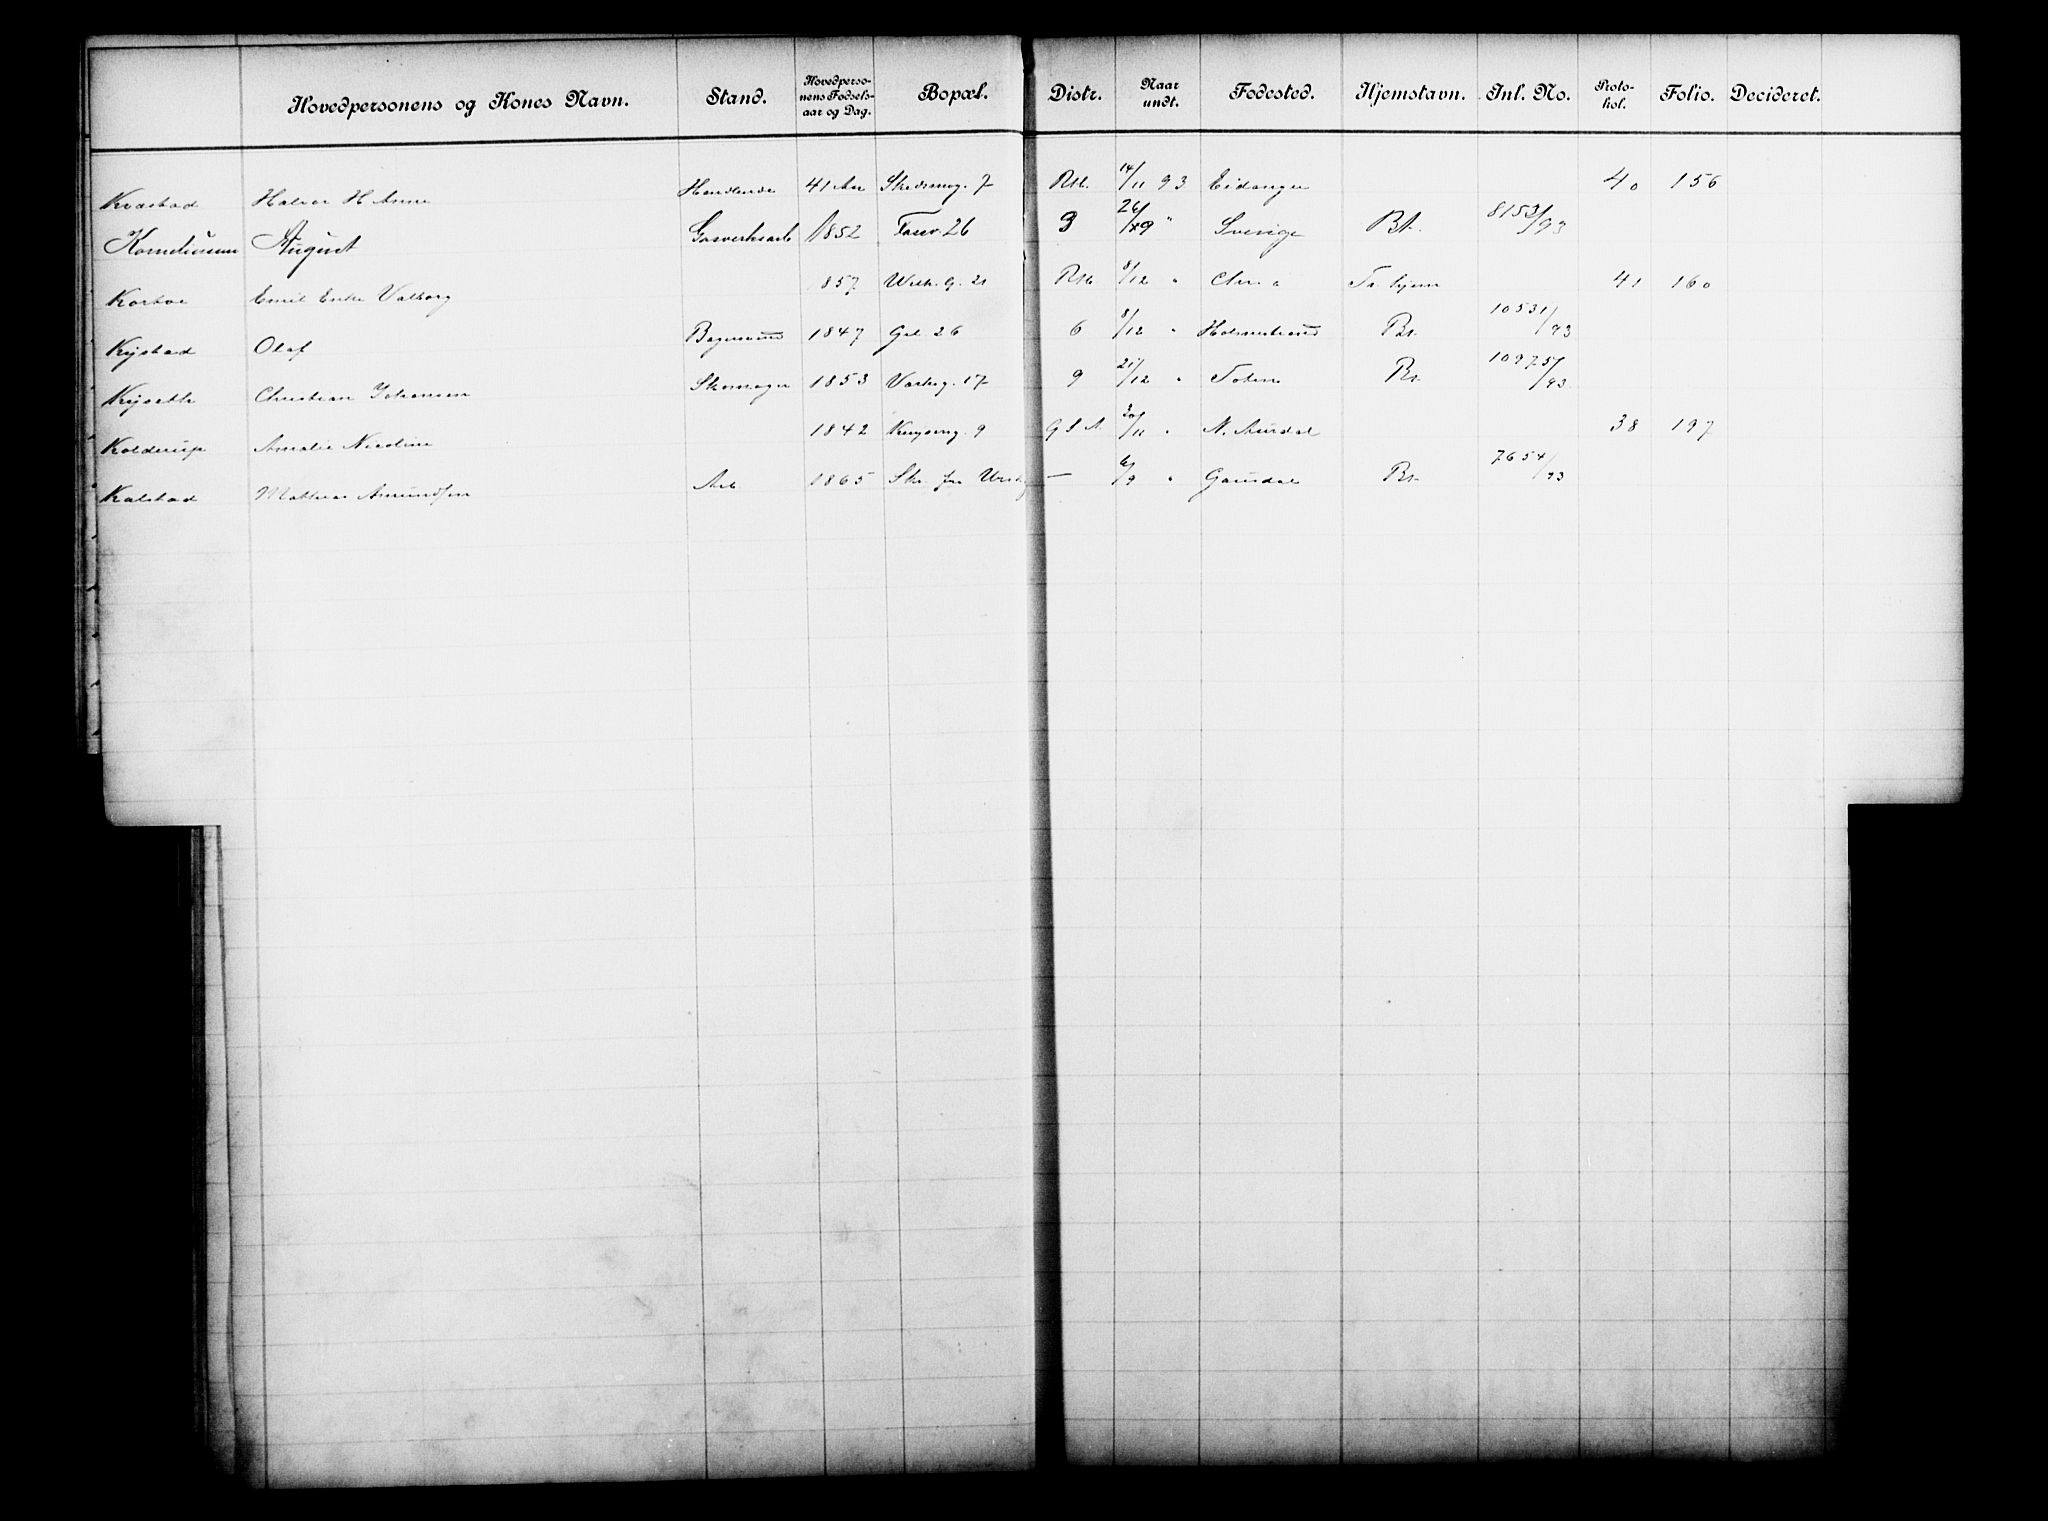 Hovedpersonens og Kones Navn. Stand. Hovedperso-nens Fødsels-aar og Dag. Bopæl. Distr. Naar undt. Fødested. Hjemstavn. Inl. No. Proto-kol. Folio. Decideret.
Kvastad Halvor H Anne Handlende 41 Aar 7 14/11 93 Eidanger 40 156
August 1852 26 3 26/9 " Sverige Bt. 8153/93
Emil Enke Valborg 1857 21 8/12 " Chr.a Tr.hjem 41 160
Kystad Olaf Bagersvend 1847 Gel 26 6 8/12 " Holmestrand Bt. 10531/93
Kyseth Christian Johansen Skomager 1853 17 9 21/12 " Toten Bt. 10975/93
Kolderup Amalie Nicoline 1842 9 G S A 30/11 " N. Aurdal 38 197
Kalstad Mathias Amundsen Arb 1865 Skr. fra — 6/9 " Gausdal Bt. 7654/93